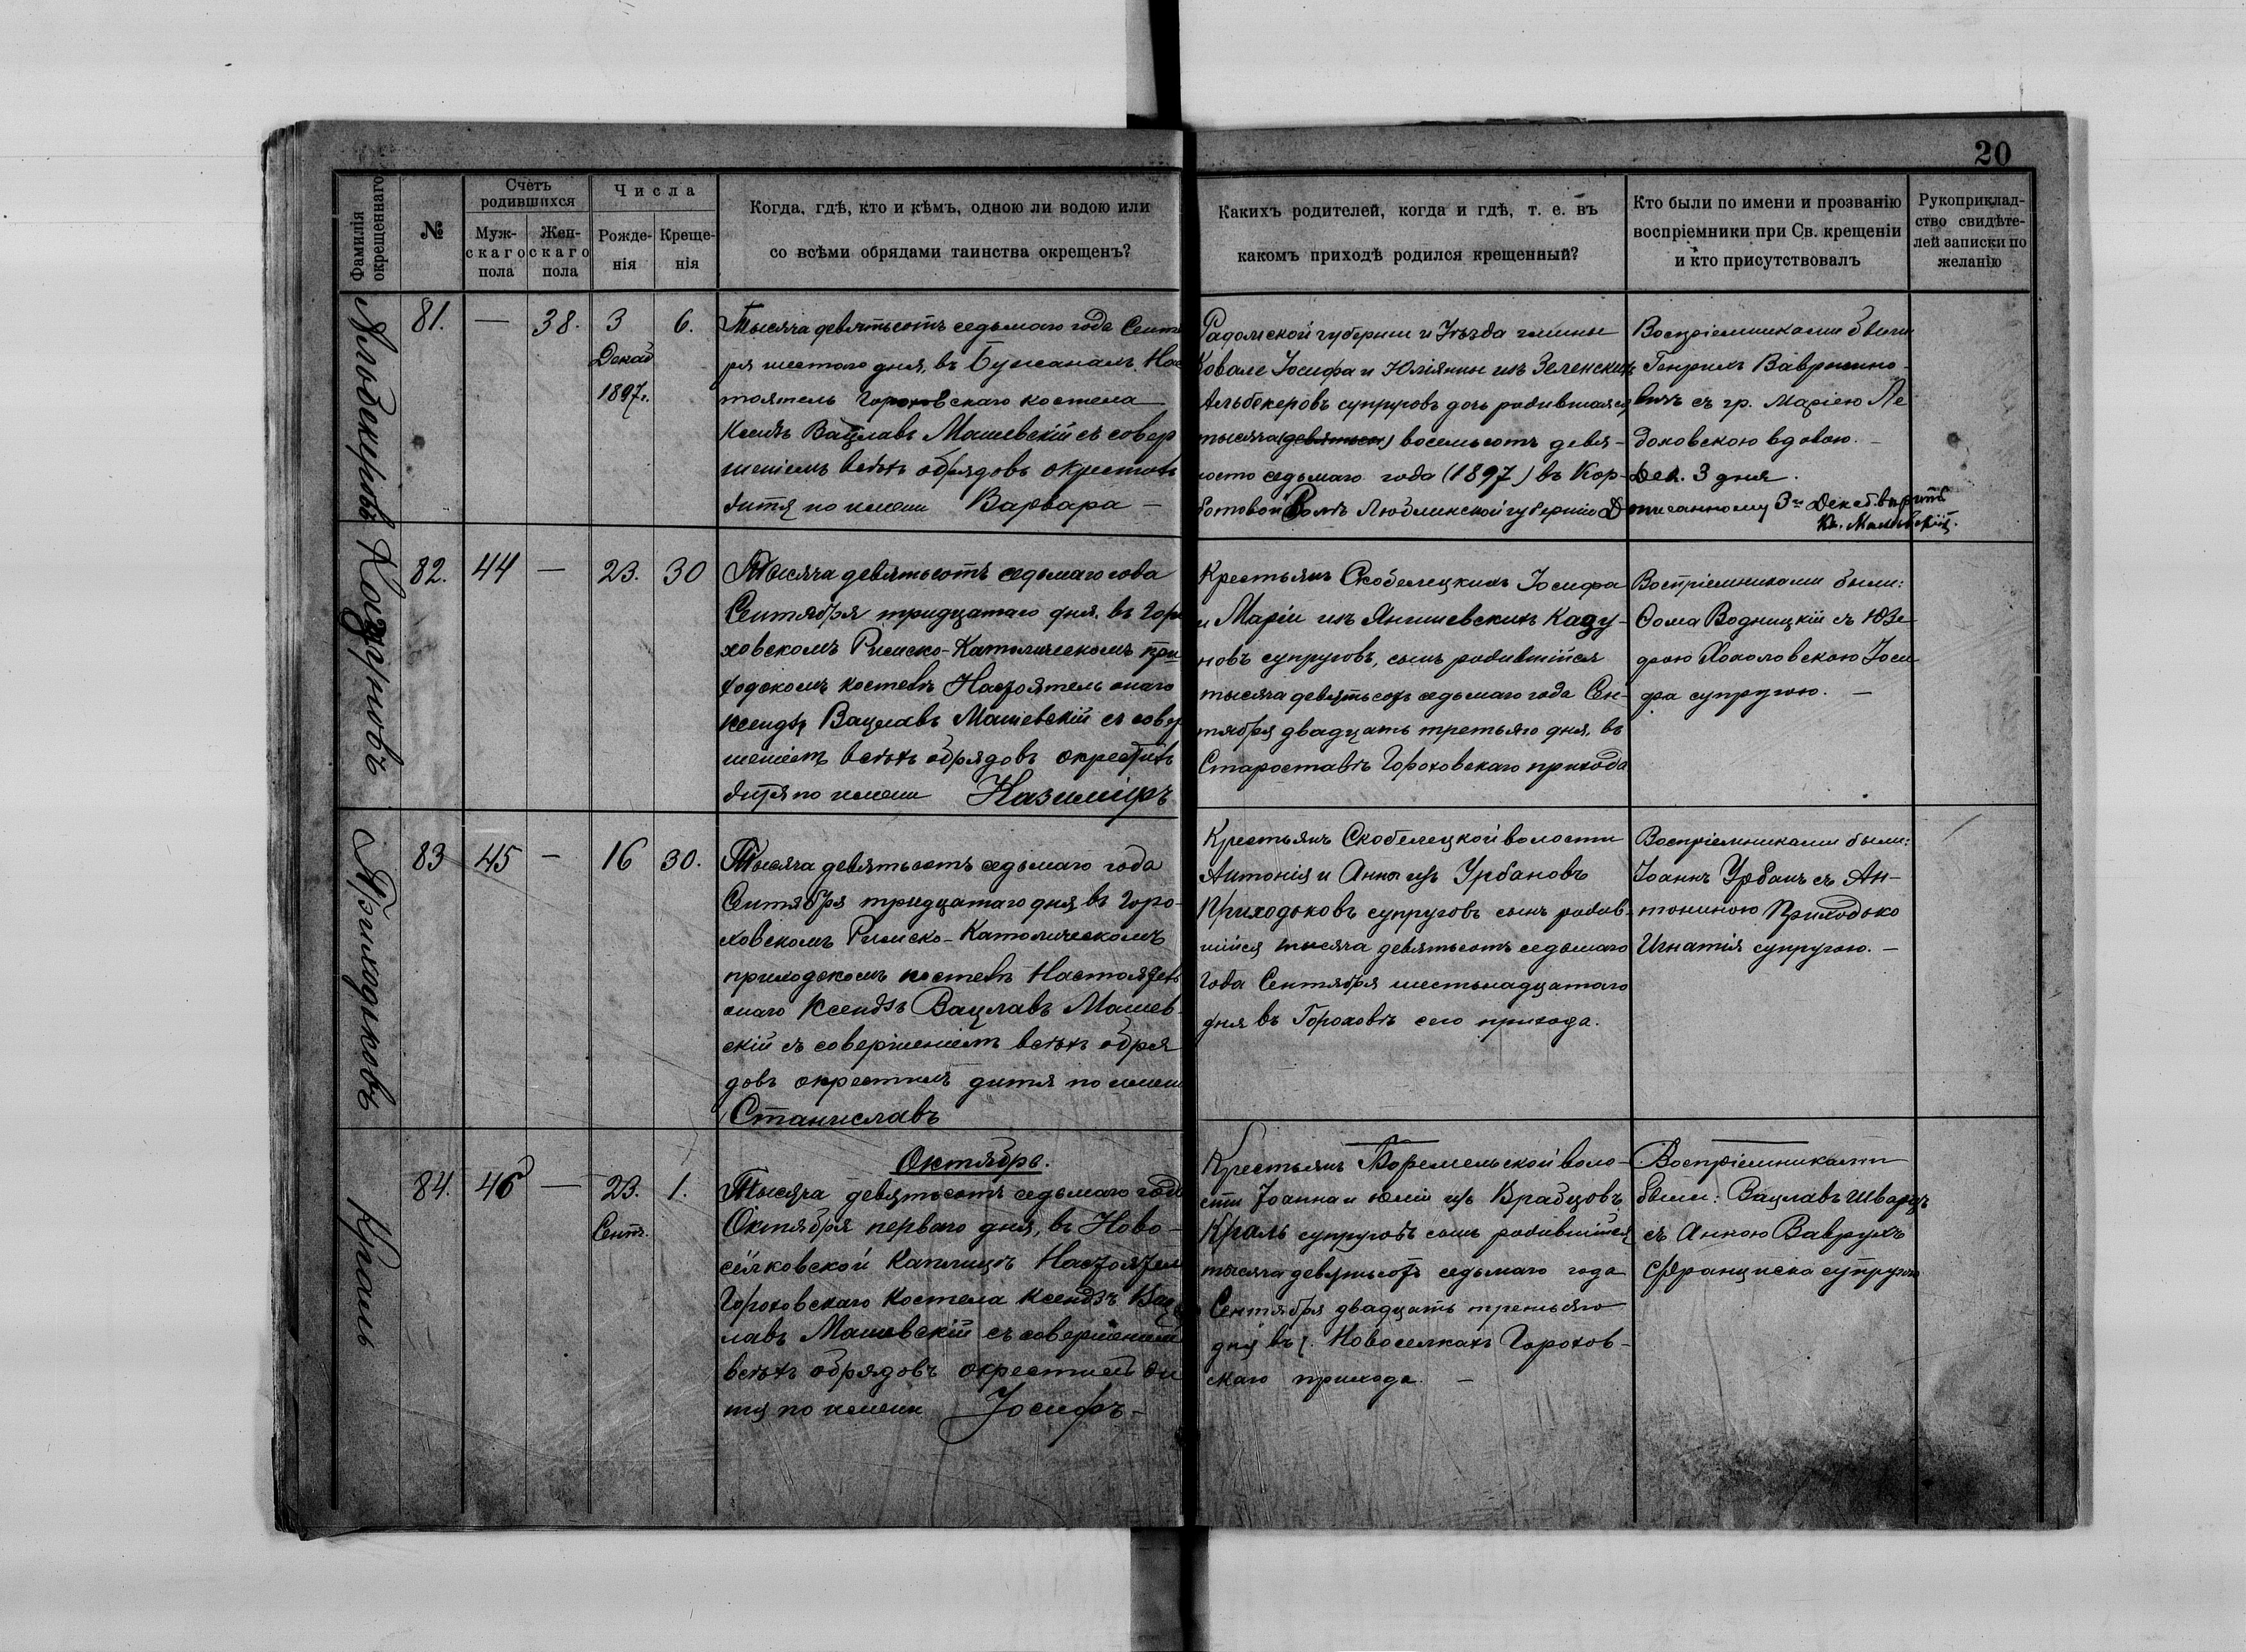 20
Фамилія окрещеннаго.
№
Счетъ родившихся
Мужскаго пола
Женскаго пола
Числа
Рожденія
Крещенія
Когда, гдѣ, кто и кѣмъ, одною ли водою или
со всѣми обрядами таинства окрещенъ?
Какихъ родителей, когда и гдѣ, т. е. въ
какомъ приходѣ родился крещенный?
Кто были по имени и прозванію
воспріемники при Св. крещеніи
и кто присутствовалъ
Рукоприклад-
ство свидѣте-
лей записки по
желанію
81.
—
38.
3
1897г.
6.
Тысяча девятьсотъ седьмаго года Сентя
ря шестого дня, въ Бужанахъ. Нас
тоятель Гороховскаго костела
Ксендзъ Вацлавъ Машевскій съ совер
шеніемъ всѣхъ обрядовъ окрестилъ
дитя по имени Варвара —
Радомской губерніи и Уѣзда гмины
Ковале Іосифа и Юліянны изъ Зеленскихъ
супруговъ дочь родившаяся
тысяча (девятьсот) восемьсотъ девя-
носто седьмаго года (1897) въ Кор-
Любинской губерніи
Воспріемниками были
Генрихъ Вавржино-
вичъ съ гр. Маріею Ле
доховскою вдовою. —
Дек. 3 дня.
писанному 3 Декаб. вѣрить
Кс. Машевскій.
Кадуновъ
82.
44
—
23.
30
Тысяча девятьсотъ седьмаго года
Сентября тридцатаго дня, въ Горо
ховскомъ Римско-Католическомъ при
ходскомъ костелѣ Настоятель онаго
Ксендзъ Вацлавъ Машевскій съ совер
шеніемъ всѣхъ обрядовъ окрестилъ
дитя по имени Казиміръ
Крестьянъ Скобелецкихъ Іосифа
и Маріи изъ Янишевскихъ Каду-
новъ супруговъ, сынъ родившійся
тысяча девятьсотъ седьмаго года Сен-
тября двадцать третьяго дня, въ
Староставѣ Гороховскаго прихода
Воспріемниками были:
Ѳома Водницкій съ Юзе
фою Іоси
фа супругою. —
Приходьковъ
83
45
—
16
30.
Тысяча девятьсотъ седьмаго года
Сентября тридцатаго дня, въ Горо-
ховскомъ Римско-Католическомъ
приходскомъ костелѣ Настоятель
онаго Ксендзъ Вацлавъ Машев-
скій съ совершеніемъ всѣхъ обря
довъ окрестилъ дитя по имени
Станиславъ
Крестьянъ Скобелецкой волости
Антонія и Анны изъ Урбановъ
Приходьковъ супруговъ сынъ родив-
шійся тысяча девятьсотъ седьмаго
года Сентября шестьнадцатаго
дня въ Гороховѣ сего прихода.
Воспріемниками были:
Іоаннъ Урбанъ съ Ан-
тониною Приходько
Игнатія супругою. —
Краль
84.
46
—
23.
Сент.
1.
Октябрь.
Тысяча девятьсотъ седьмаго года
Октября перваго дня, въ Ново-
селковской Каплицѣ Настоятель
Гороховскаго Костела Ксендзъ Вац
лавъ Машевскій съ совершеніемъ
всѣхъ обрядовъ окрестилъ ди
тя по имени Іосифъ —
Крестьянъ Боремельской воло-
сти Іоанна и Юліи изъ Врабцовъ
Краль супруговъ сынъ родившійся
тысяча девятьсотъ седьмаго года
Сентября двадцать третьяго
дня въ с. Новоселкахъ Горохов-
скаго прихода. —
Воспріемниками
были: Вацлавъ Шварцъ
съ Анною Ваврухъ
Франциска супругою